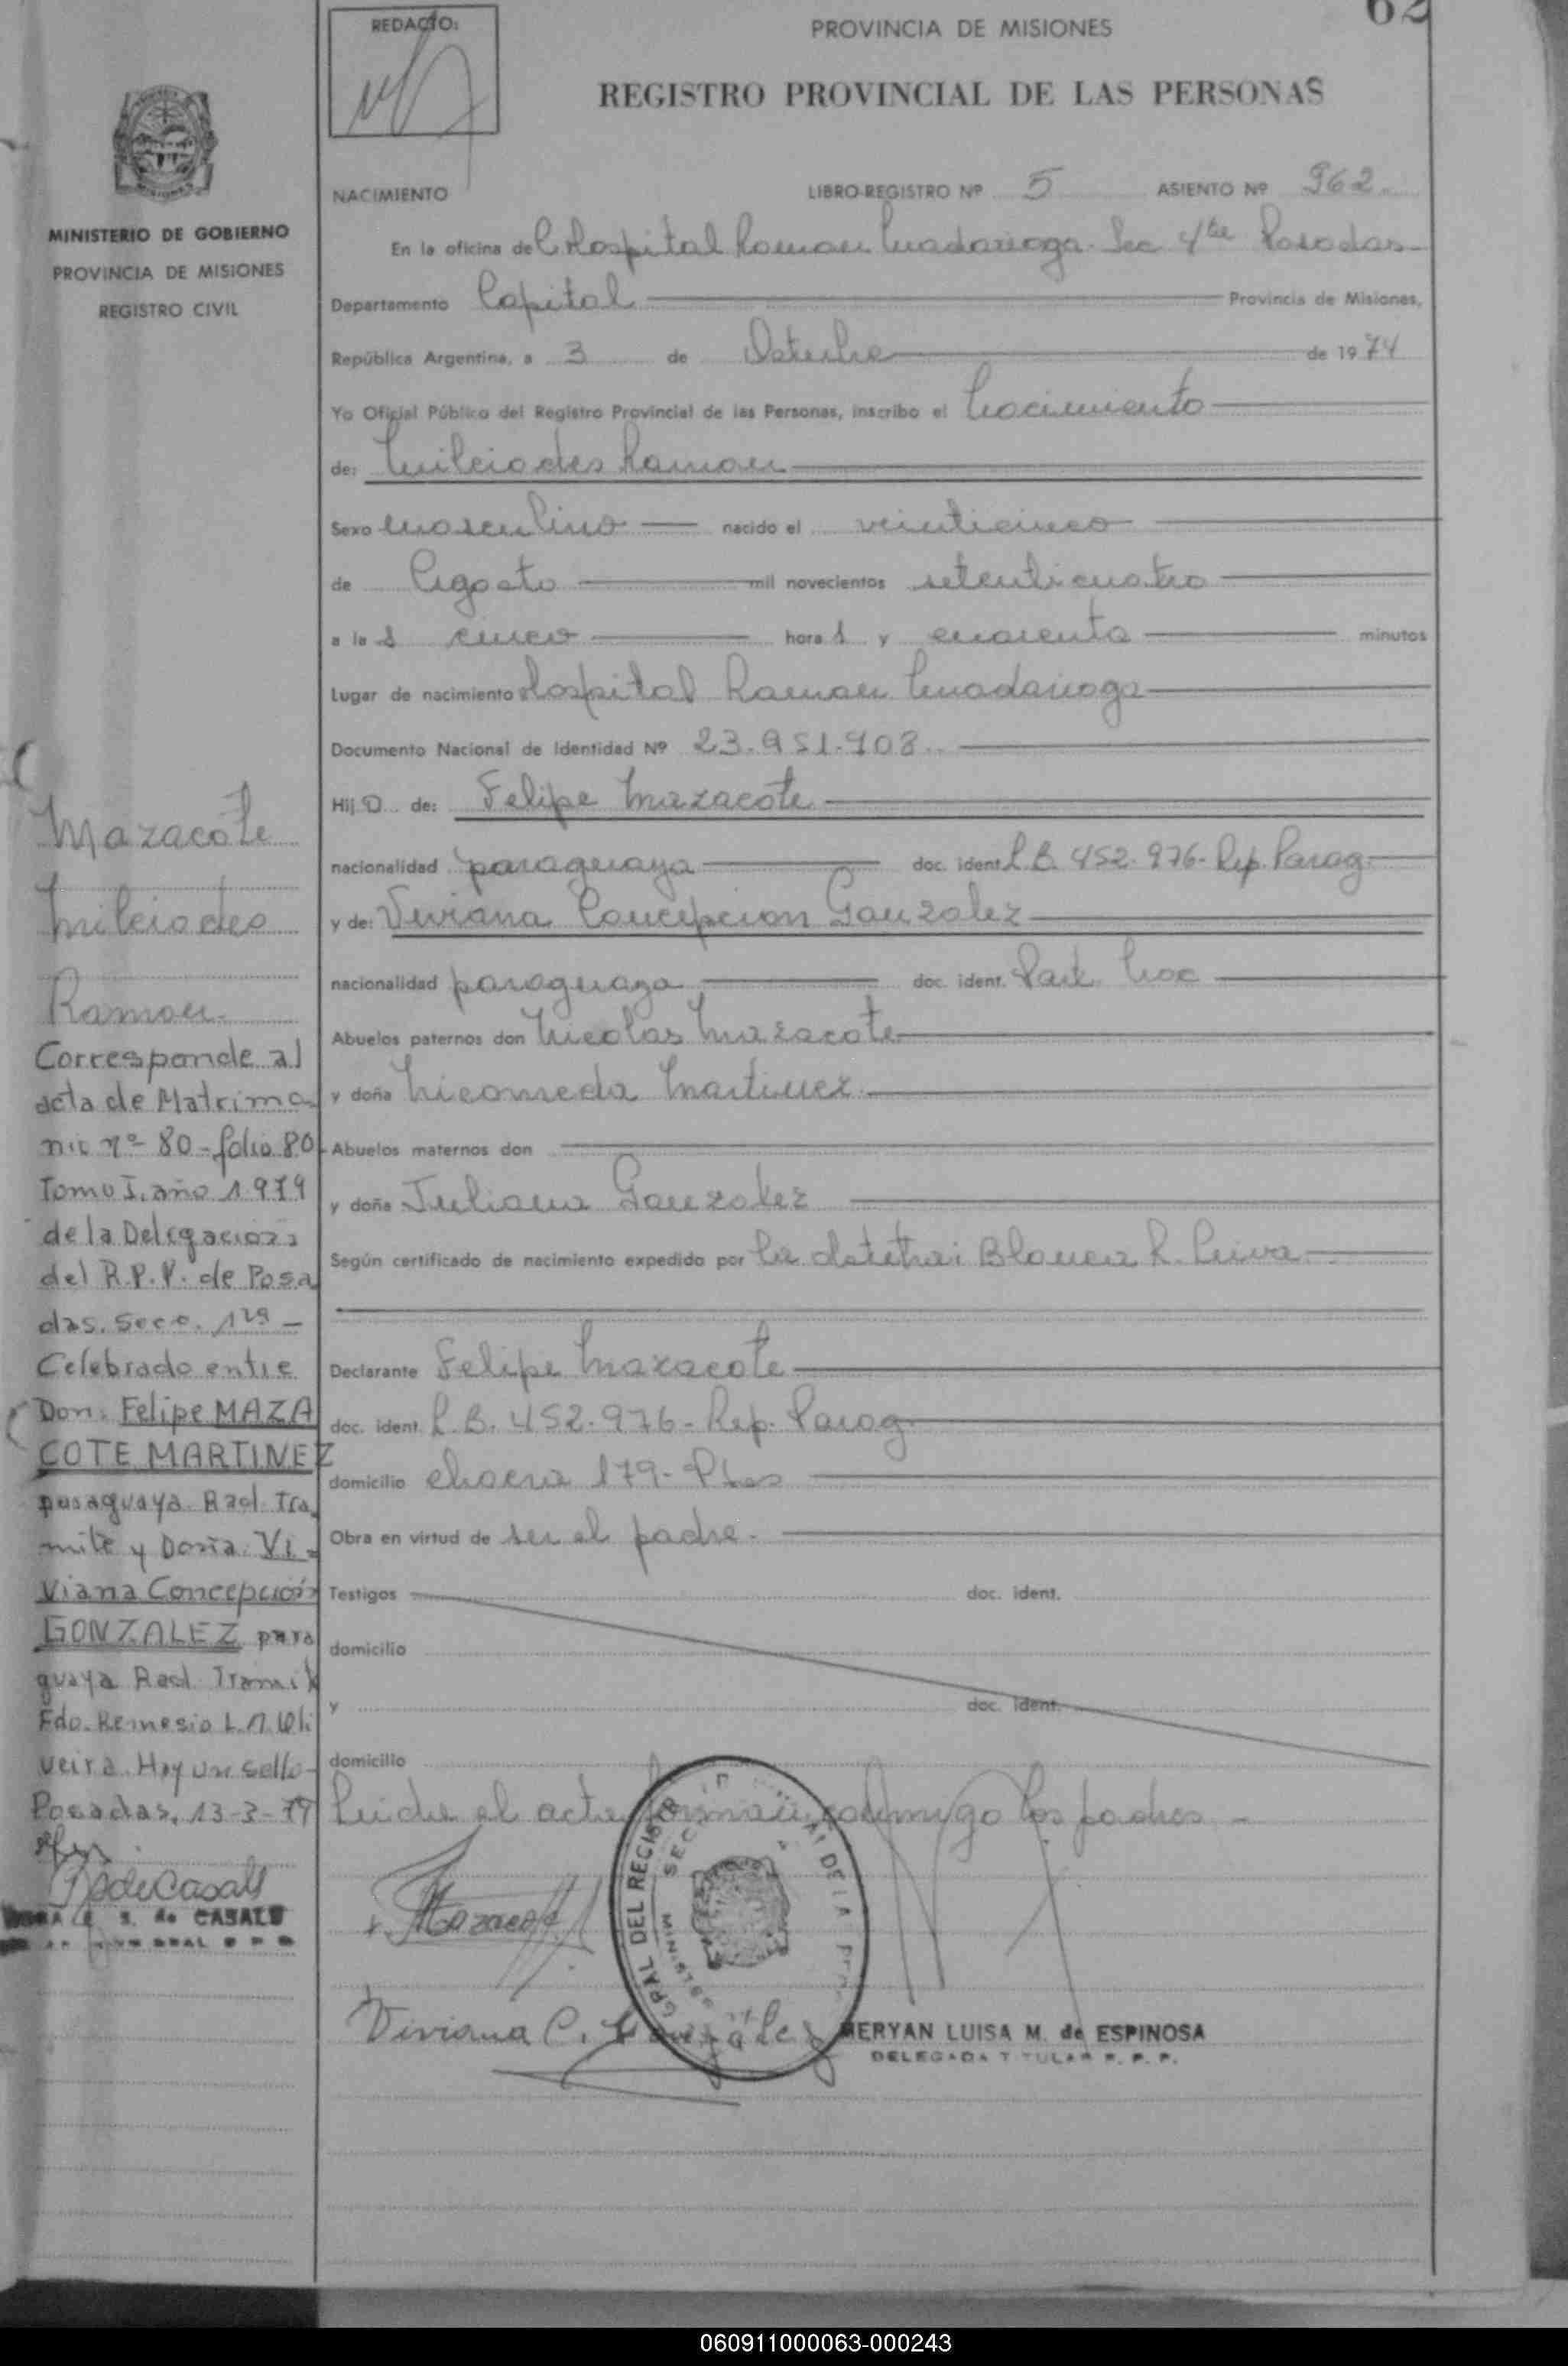 62
REDACTO:
PROVINCIA DE MISIONES
REGISTRO PROVINCIAL DE LAS PERSONAS
MINISTERIO DE GOBIERNO
PROVINCIA DE MISIONES
REGISTRO CIVIL
NACIMIENTO LIBRO-REGISTRO Nº 5 ASIENTO Nº 962.
En la oficina del Hospital Ramon Madariaga - Sec 4ta Posadas
Departamento Capital Provincia de Misiones,
República Argentina, a 3 de Octubre de 1974
Yo Oficial Público del Registro Provincial de las Personas, inscribo el Nacimiento
de: Milciades Ramon
Sexo Masculino nacido el veinticinco
de Agosto mil novecientos setenticuatro
a las cinco horas y cuarenta minutos
Lugar de nacimiento Hospital Ramon Madariaga
Documento Nacional de Identidad Nº 23.951.903.
Hijo de: Felipe Mazacote
nacionalidad paraguaya doc. ident. L B. 452.976- Rep. Parag
y de: Viviana Concepcion Gonzalez
nacionalidad paraguaya doc. ident.
Abuelos paternos don Nicolas Mazacote
y doña Nicomeda Martinez
Abuelos maternos don
y doña Juliana Gonzalez
Según certificado de nacimiento expedido por la obstetra: Blanca R. Leiva
Declarante Felipe Mazacote
doc. ident. L.B. 452.976- Rep. Parag
domicilio chacra 179- Pdas
Obra en virtud de ser el padre.
Testigos doc. ident.
domicilio
y doc. ident.
domicilio
Leida el acta firman conmigo los padres -
Mazacote
Viviana C. González
MERYAN LUISA M. de ESPINOSA
DELEGADA TITULAR R. P. P.
GRAL DEL REGISTR
Mazacote
Milciades
Ramon.
Corresponde al
acta de Matrimo
nio nº 80 - folio 80
Tomo I. año 1.979
de la Delegación
del R.P.P. de Posa
das. Secc. 1ra -
Celebrado entre
Don: Felipe MAZA
COTE MARTINEZ
paraguaya Rad. Tra
mite y Doña Vi-
viana Concepción
GONZALEZ para
guaya Rad. Tramite
Fdo. Remesio L. A. Oli
veira. Hay un sello-
Posadas, 13-3-79
de Casals
S. de CASALS
060911000063-000243